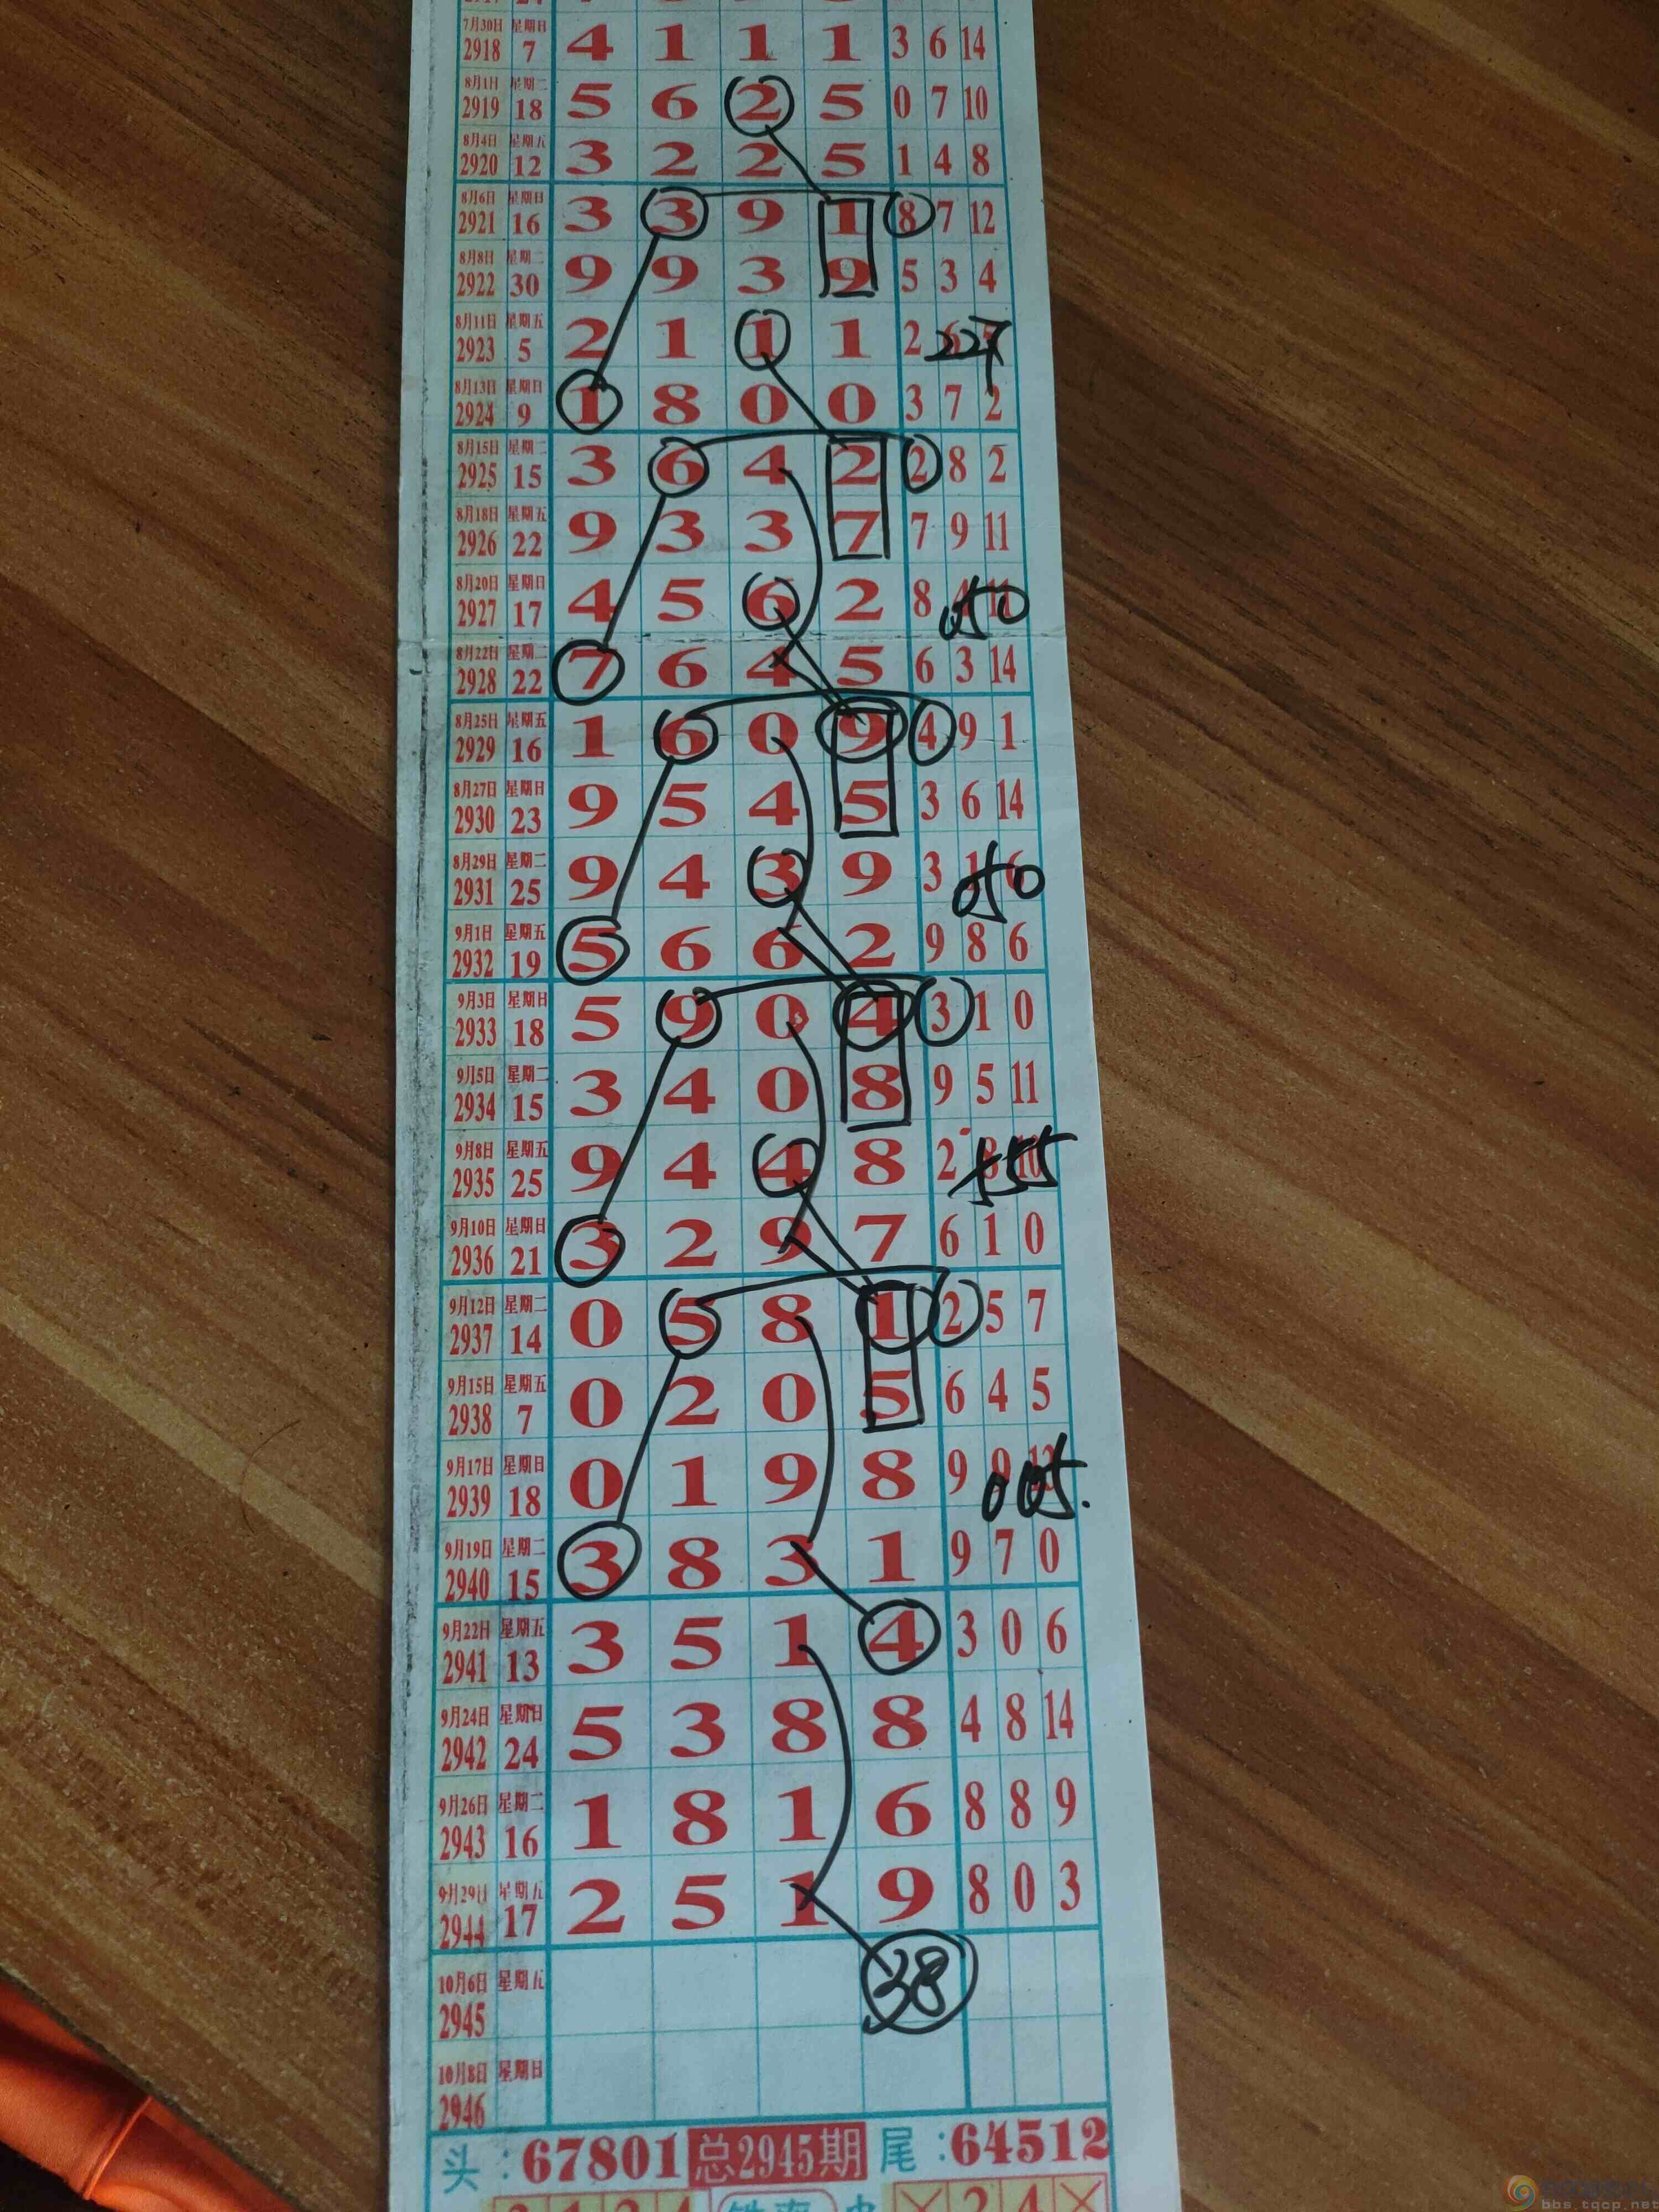 7月30日 星期日
2918 7 4 1 1 1 3 6 14
8月1日 星期二
2919 18 5 6 2 5 0 7 10
8月4日 星期五
2920 12 3 2 2 5 1 4 8
8月6日 星期日
2921 16 3 3 9 1 8 7 12
8月8日 星期二
2922 30 9 9 3 9 5 3 4
8月11日 星期五
2923 5 2 1 1 1 2 6 227
8月13日 星期日
2924 9 1 8 0 0 3 7 2
8月15日 星期二
2925 15 3 6 4 2 2 8 2
8月18日 星期五
2926 22 9 3 3 7 7 9 11
8月20日 星期日
2927 17 4 5 6 2 8 4 11 050
8月22日 星期二
2928 22 7 6 4 5 6 3 14
8月25日 星期五
2929 16 1 6 0 9 4 9 1
8月27日 星期日
2930 23 9 5 4 5 3 6 14
8月29日 星期二
2931 25 9 4 3 9 3 1 6 050
9月1日 星期五
2932 19 5 6 6 2 9 8 6
9月3日 星期日
2933 18 5 9 0 4 3 1 0
9月5日 星期二
2934 15 3 4 0 8 9 5 11
9月8日 星期五
2935 25 9 4 4 8 2 8 10 555
9月10日 星期日
2936 21 3 2 9 7 6 1 0
9月12日 星期二
2937 14 0 5 8 1 2 5 7
9月15日 星期五
2938 7 0 2 0 5 6 4 5
9月17日 星期日
2939 18 0 1 9 8 9 9 12 005.
9月19日 星期二
2940 15 3 8 3 1 9 7 0
9月22日 星期五
2941 13 3 5 1 4 3 0 6
9月24日 星期日
2942 24 5 3 8 8 4 8 14
9月26日 星期二
2943 16 1 8 1 6 8 8 9
9月29日 星期五
2944 17 2 5 1 9 8 0 3
10月6日 星期五
2945 38
10月8日 星期日
2946
头:67801 总2945期 尾:64512
bbs.tqcp.net